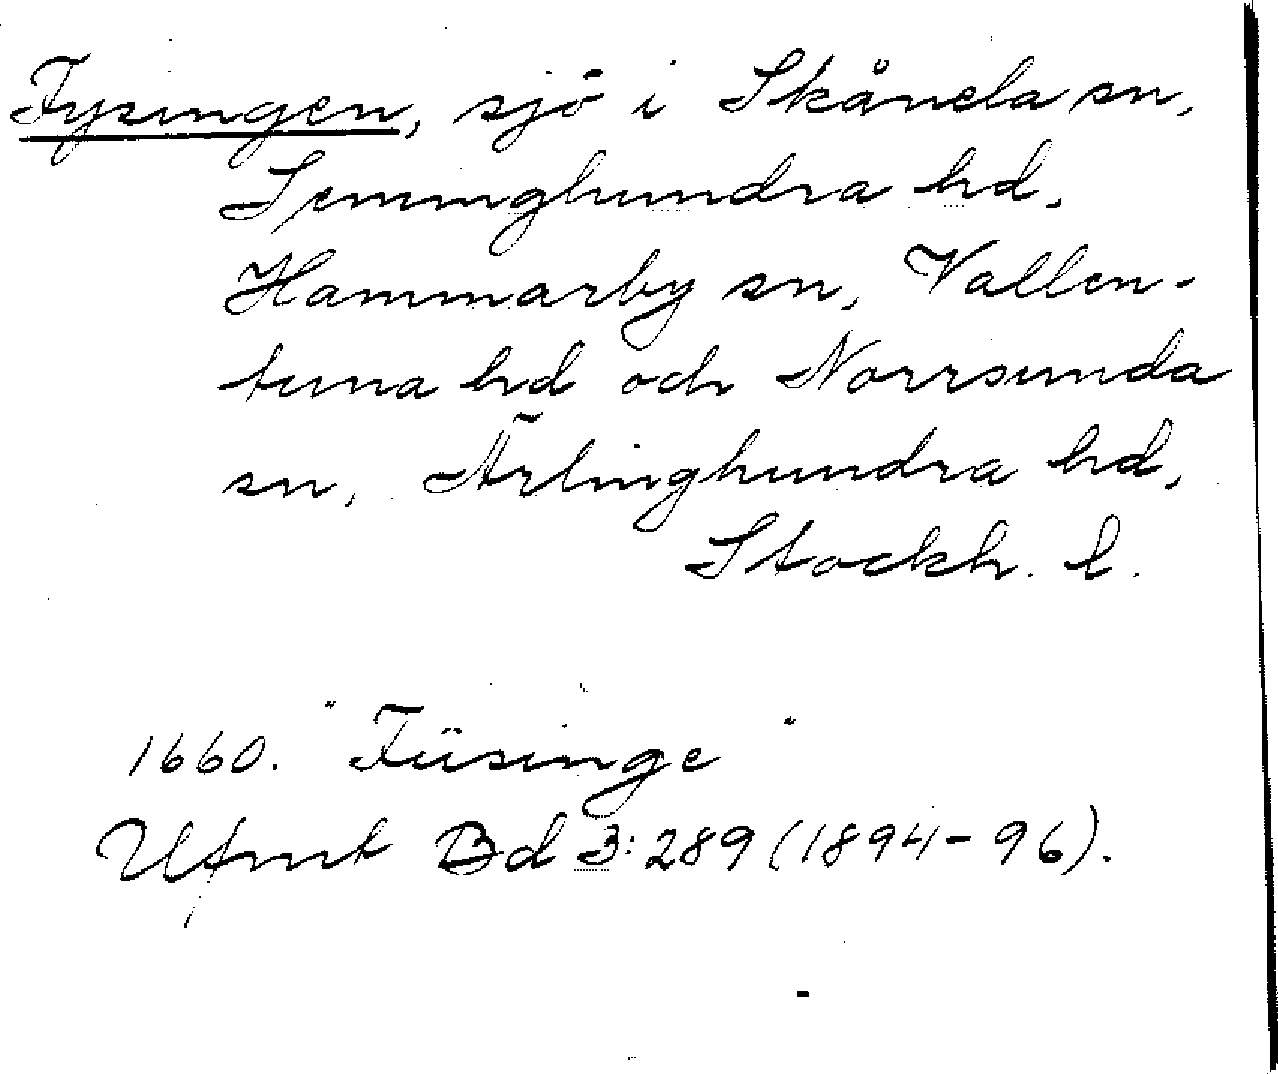 Fysingen, sjö i Skånela sn,
Seminghundra hd.
Hammarby sn, Vallen-
tuna hd och Norrsunda
sn, Ärlinghundra hd,
Stockh. l.
1660. "Füsinge"
Ufmt Bd 3:289 (1894-96).